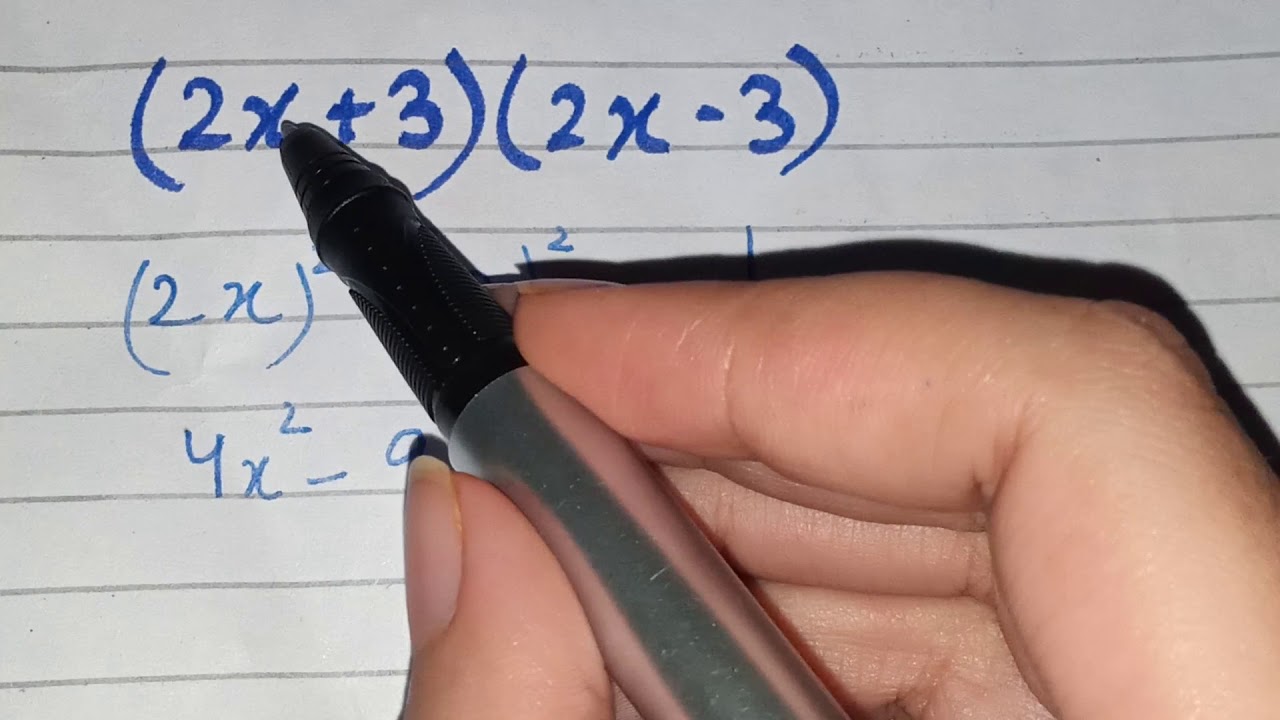 (2x+3)(2x-3)
(2x)² ²
4x² - 9